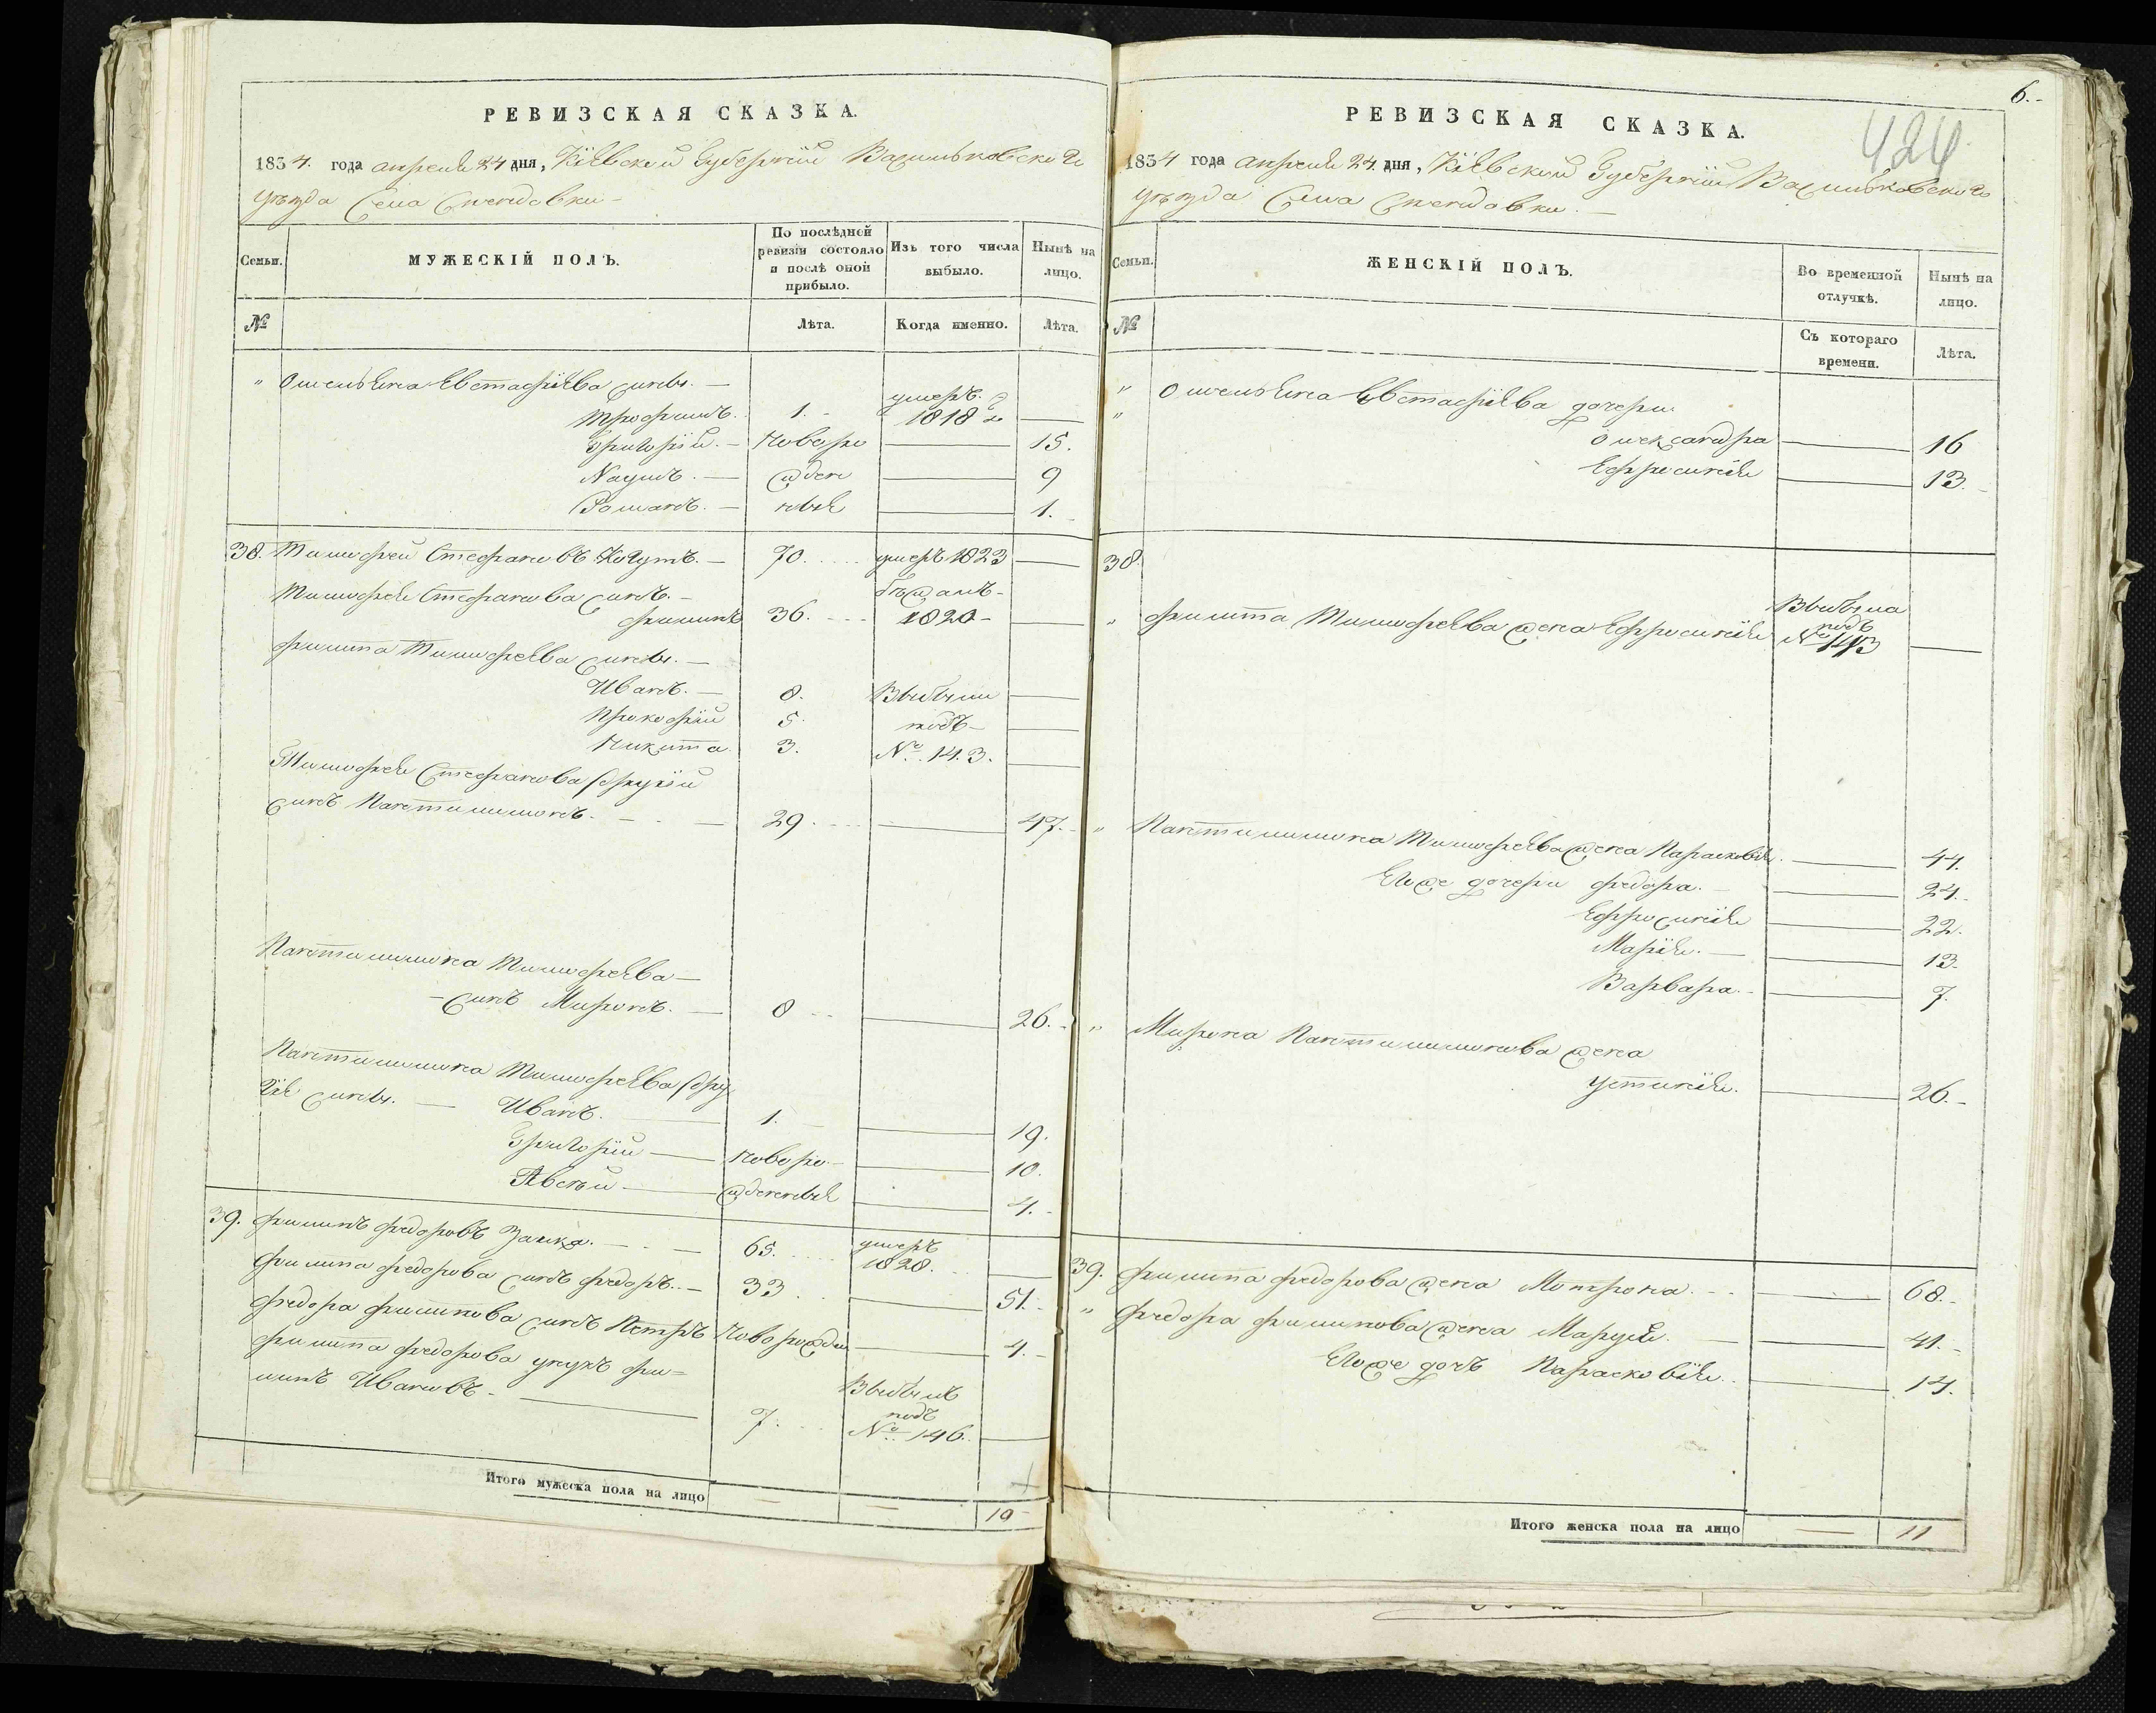 РЕВИЗСКАЯ СКАЗКА.
1834. года апреля 24 дня, Кіевской Губерніи Васильковскаго
уѣзда Села
Семьи.
МУЖЕСКІЙ ПОЛЪ.
По послѣдней ревизіи состояло и послѣ оной прибыло.
Изъ того числа выбыло.
Нынѣ на лицо.
№
Лѣта.
Когда именно.
Лѣта.
" Омельяна Евстафіева сыны. —
Трофимъ. 1. - умеръ 1818 —
Григорій. — новоро — 15.
Наумъ. — жден — 9
Романъ. — ныя — 1.
38. Тимофей Стефановъ Когутъ. — 70. умеръ 1823 —
Тимофея Стефанова сынъ. —
Филипъ 36. бѣжалъ - 1820 - —
Филипа Тимофеева сыны. —
Иванъ. — 8. Выбыли —
Прокофій 5. подъ —
Никита. 3. № 143. —
Тимофея Стефанова другій
сынъ Пантилимонъ. — 29. — 47.
Пантилимона Тимофеева —
- сынъ Миронъ. — 8 — 26.
Пантилимона Тимофеева дру
гія сыны. — Иванъ. — 1. — 19.
Григорій — новоро — 10.
Авксей — жденныя — 4.
39. Филипъ Федоровъ Заика. — 65. умеръ 1828. —
Филипа Федорова сынъ Федоръ. — 33 — 51.
Федора Филипова сынъ Петръ новорожден — 4.
Филипа Федорова унукъ Фи=
липъ Ивановъ. — 7. Выбылъ подъ № 146. —
Итого мужеска пола на лицо — — 10
6.-
424
РЕВИЗСКАЯ СКАЗКА.
1834 года апреля 24. дня, Кіевской Губерніи Васильковскаго
уѣзда Села
Семьи.
ЖЕНСКІЙ ПОЛЪ.
Во временной отлучкѣ.
Нынѣ на лицо.
№
Съ котораго времени.
Лѣта.
" Омельяна Евстафіева дочери
" Олександра — 16
Ефросинія — 13.
38.
" Филипа Тимофеева жена Ефросинія Выбыла подъ № 143 —
" Пантилимона Тимофеева жена Парасковія. — 44.
Егоже дочери Федора. — 24.
Ефросинія — 22.
Марія. — 13.
Варвара. — 7.
" Мирона Пантилимонова жена
Устинія. — 26.
39. Филипа Федорова жена Мотрона. — 68.
" Федора Филипова жена Маруся. — 41.
Егоже дочь Парасковія. — 14.
Итого женска пола на лицо — 11